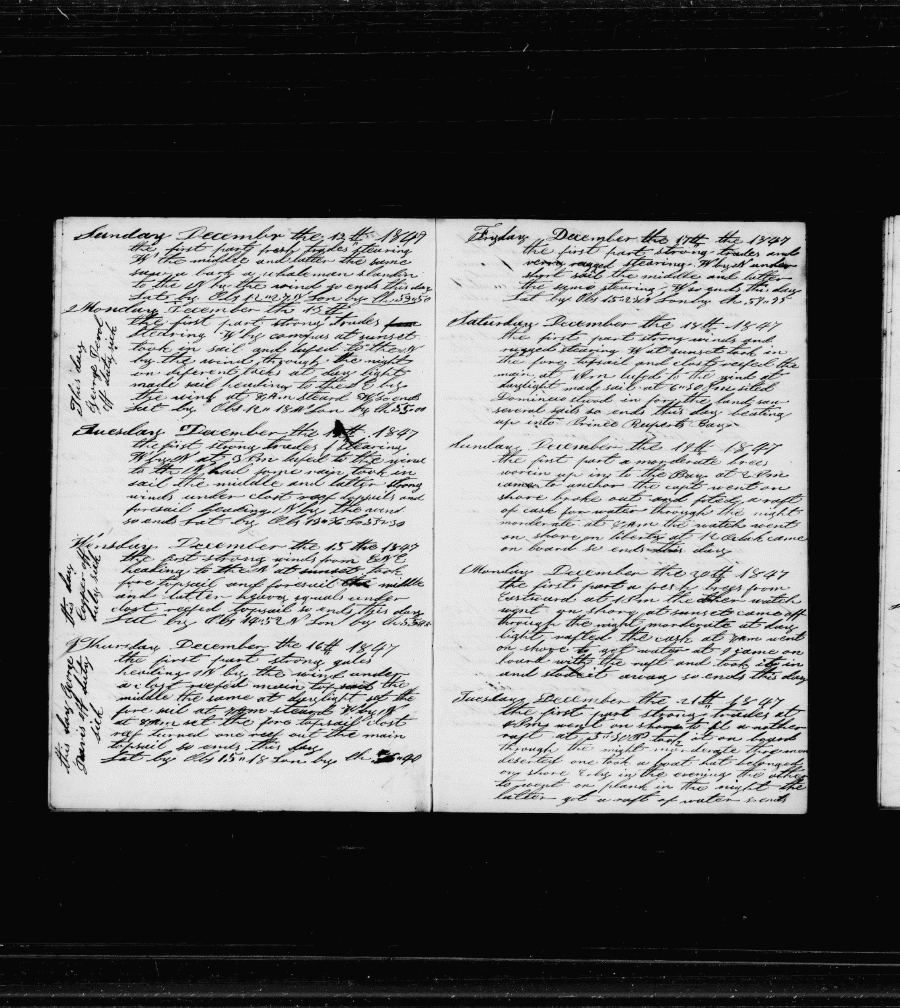 Sunday December the 12th 1847
the first part fresh trades stearing
W the middle and latter the same
saw a barg a whaleman standin
to the N by the wind so ends this day
Lat by Obs 12"27 N Lon by Ch 53"50
Monday December the 13th
the first part strong trades
stearing W by compas at sunset
took in sail and lufed to the N
by the wind through the night
on diferent tacks at day light
made sail heading to the S E by
the wind at 8 AM steard W so ends
Lat by Obs 12" 18 N Lon by Ch 55"00
This day
George
off duty sick
Tuesday December the 14th 1847
the first strong trades stearing
W by N at 3 PM lufed to the wind
to the N had some rain took in
sail the middle and latter strong
winds under clost reef topsails and
foresail heading N by the wind
so ends Lat by Obs 13"
Winsday December the 15 the 1847
the first strong winds from ENE
heading to the N at sunset took
fore topsail and foresail the middle
and latter heavy squals under
clost reefed topsail so ends this day
Lat by Obs 14"52 N Lon by Ch
this day
Cooper off
duty sick
Thursday December the 16th 1847
the first part strong gales
heading N by the wind under
a clost reefed main topsail the
middle the same at daylight set the
fore sail at 7 AM steard W by N
at 8 AM set the fore topsail clost
reef turned one reef out the main
topsail so ends this day
Lat by Obs 15"18 Lon by Ch 40
this day George
Davis off duty
sick
Fryday December the 17th the 1847
the first part strong trades and
verry ruged stearing W by N under
short sail the middle and latter
the same stearing W so ends this day
Lat by Obs 15"23 N Lon by Ch 57"
Saturday December the 18th 1847
the first part strong winds and
rugged stearing W at sunset took in
the fore topsail and clost reefed the
main at lufed to the wind at
daylight mad sail at 6"30 AM
Dominico stood in for the land saw
several sails so ends this day beating
up into Prince Ruperts Bay
Sunday December the 19th 1847
the first part a moderate brees
workin up in to the Bay at 2 PM
came to anchor the capt went on
shore broke out and foted a raft
of cask for water through the night
morderate at 8 AM the watch went
on shore on liberty at 12 Oclock came
on board so ends this day
Monday December the 20th 1847
the first part a fresh brees from
Eastward at 1 PM the other watch
went on shore at sunset came off
through the night morderate at day
light rafted the cask at 7 AM went
on shore to get water at 9 came on
board with the raft and took it in
and stowed away so ends this day
Tuesday December the 21th 1847
the first part strong trades at
1 PM went on shore to fil a nother
raft at 5"30 PM took it on board
through the night morderate three men
deserted one took a boat that belonged
on shore in the evening the other
to went on plank in the night the
latter got a raft of water so ends